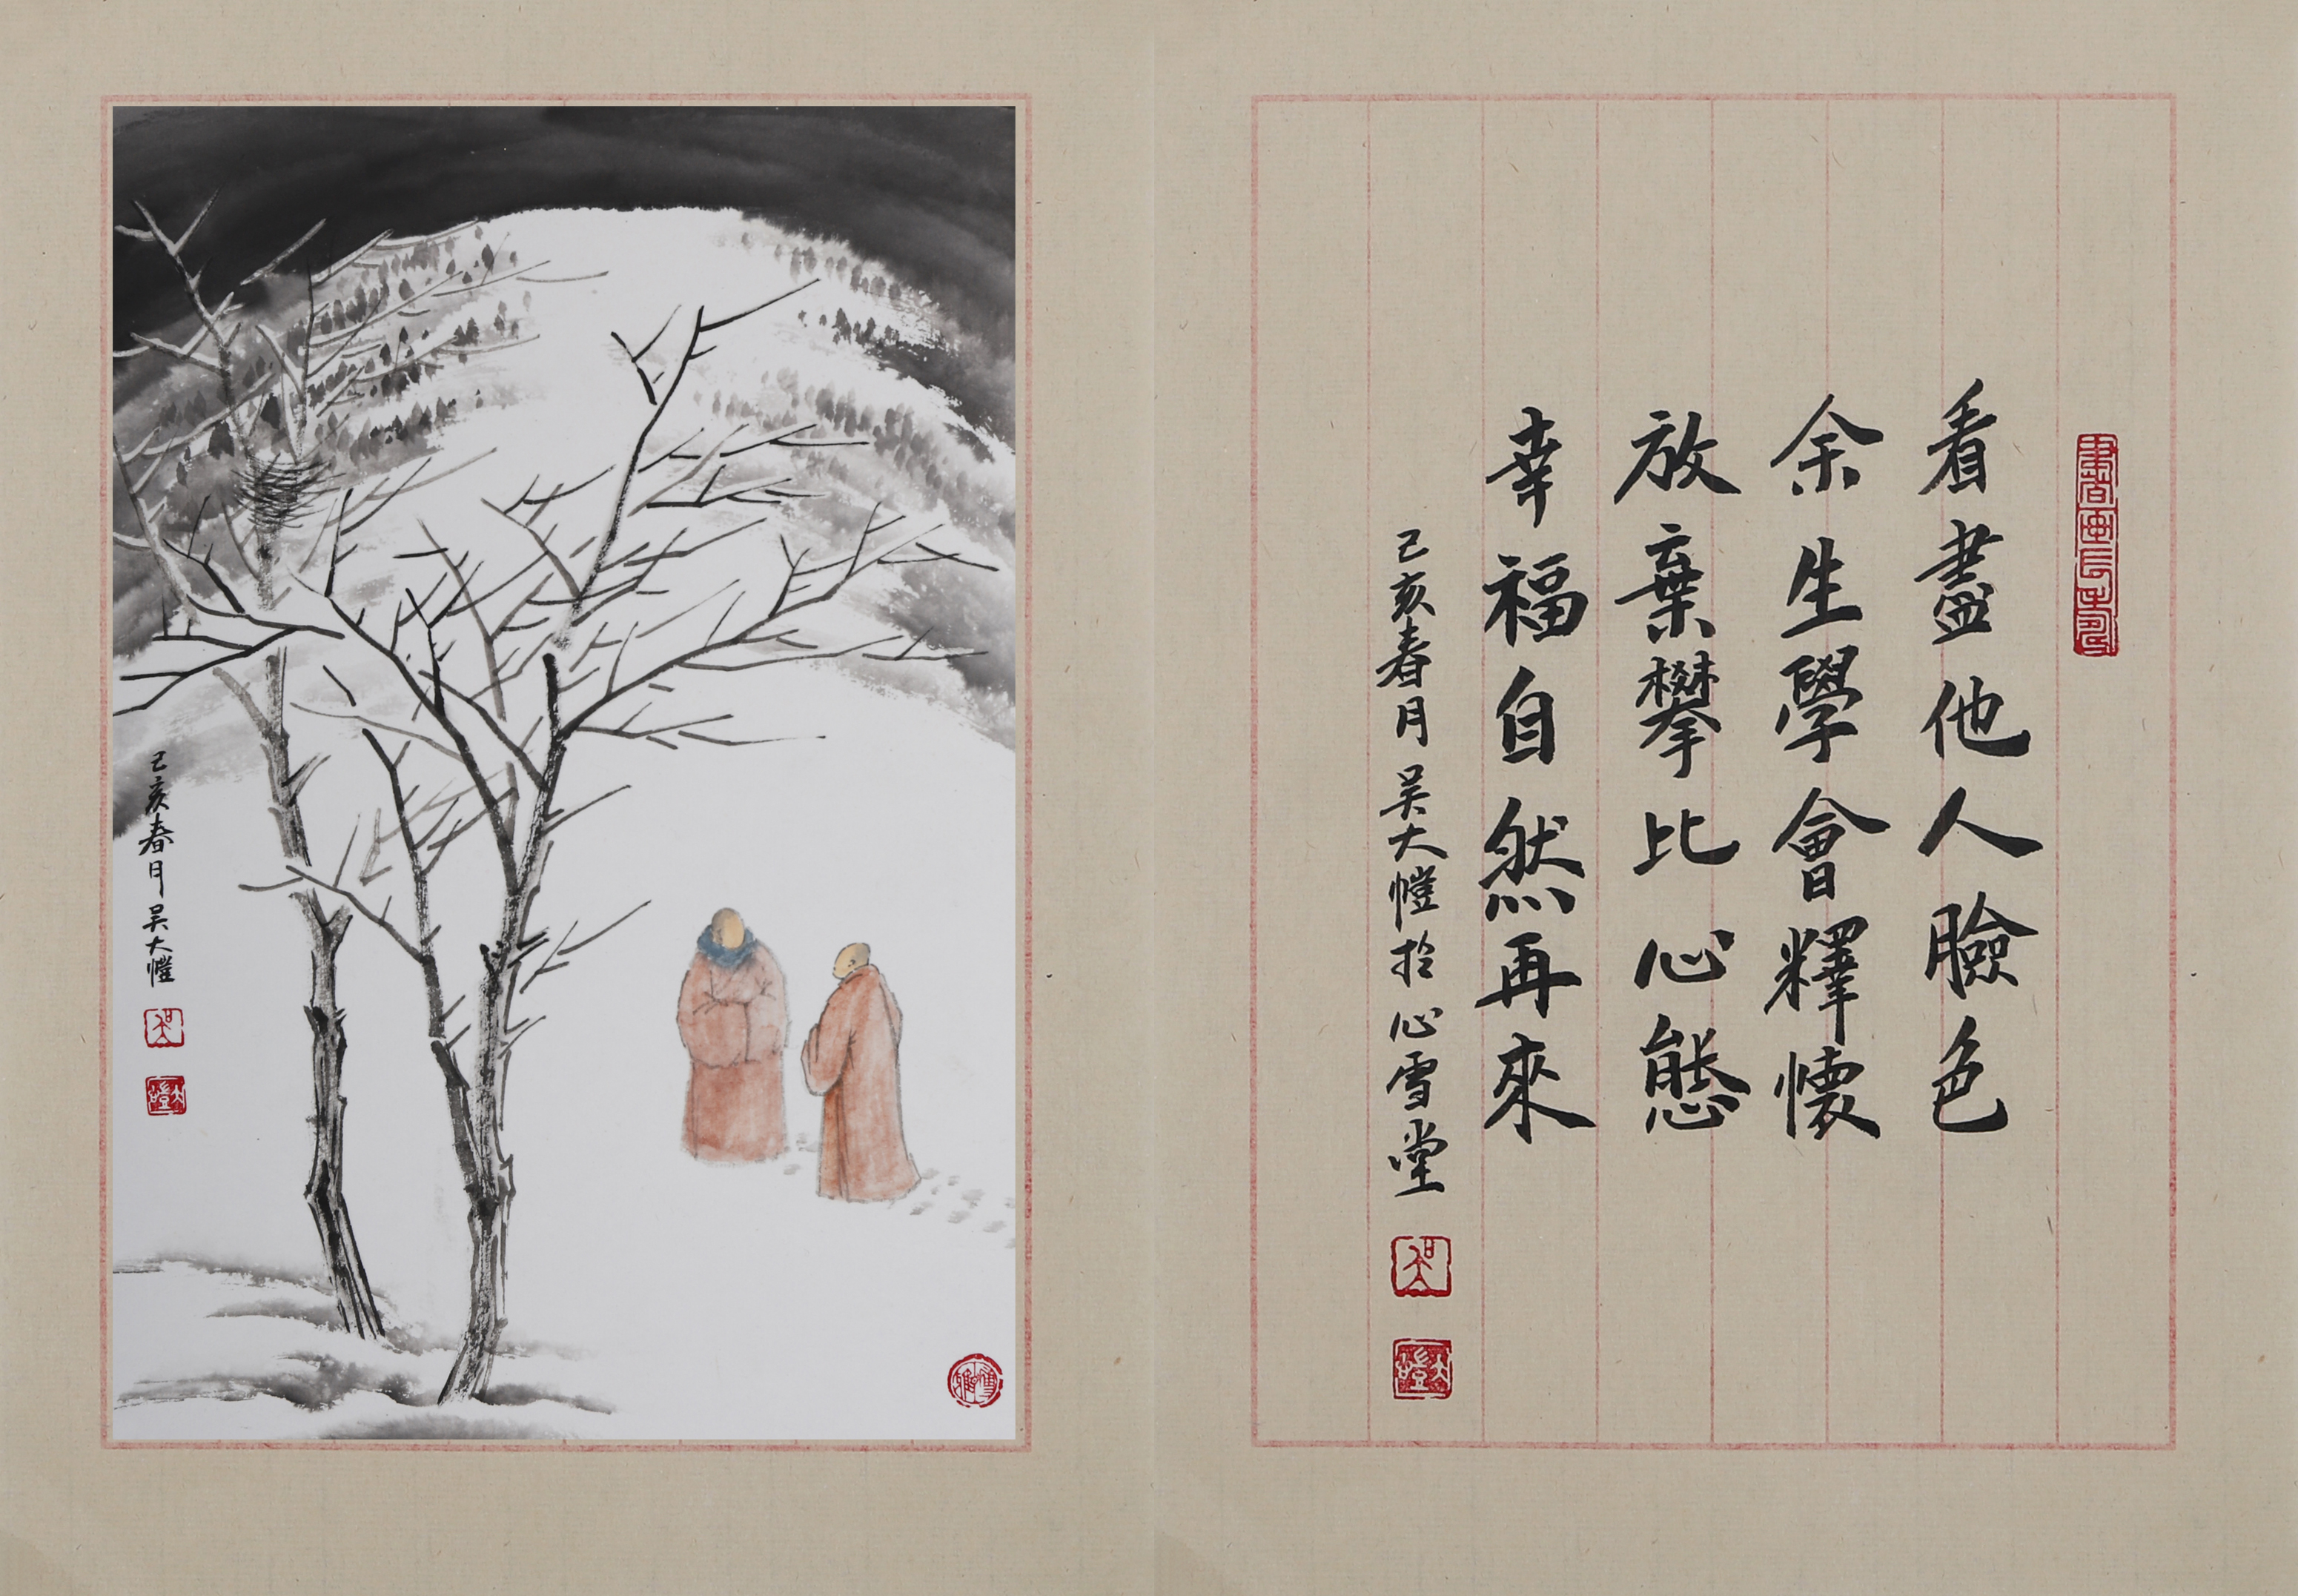 看盡他人臉色
余生學會釋懷
放棄攀比心態
幸福自然再來
己亥春月 吴大愷於心雪堂
己亥春月 吴大愷